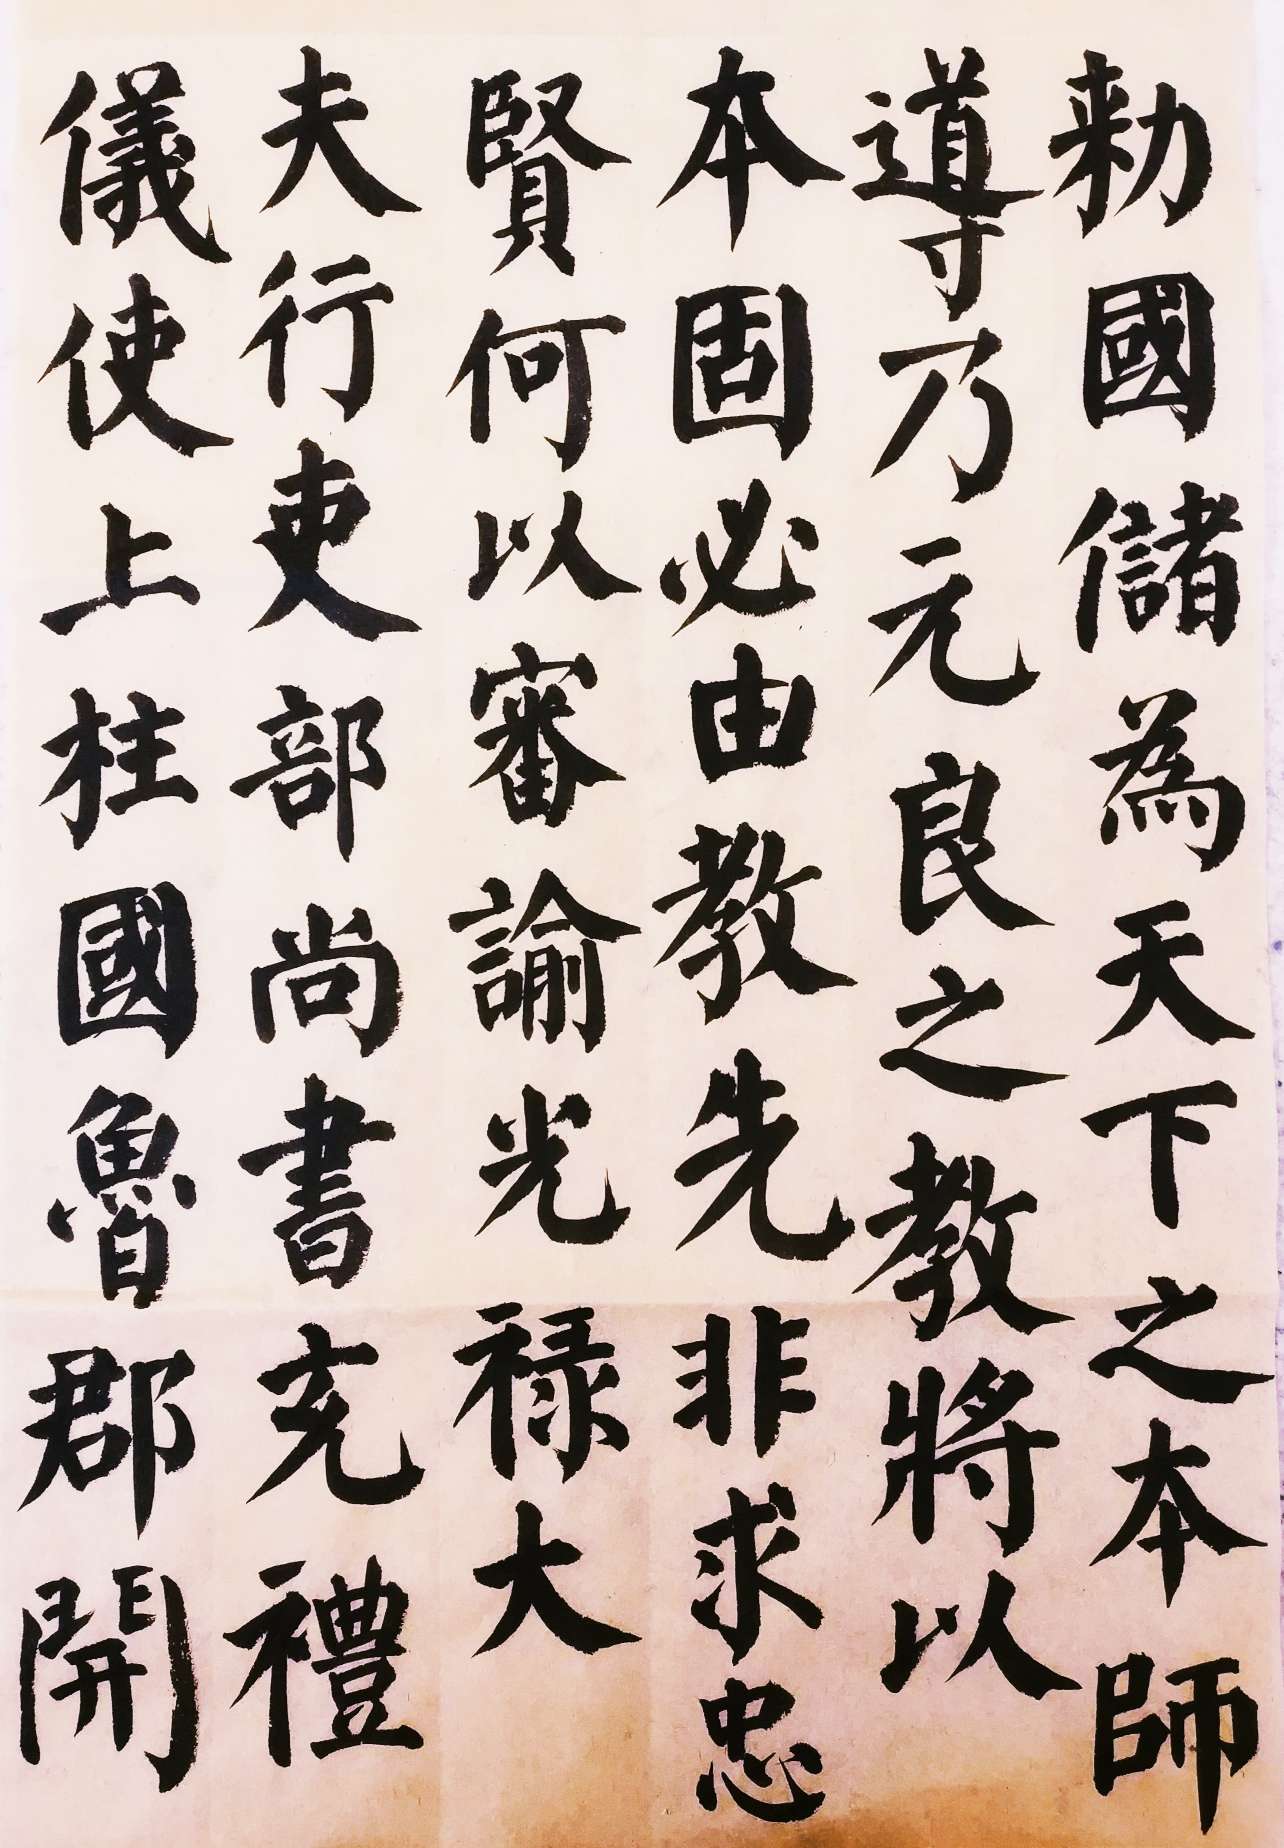 勑國儲為天下之本師
導乃元良之教將以
本固必由教先非求忠
賢何以審諭光禄大
夫行吏部尚書充禮
儀使上柱國魯郡開